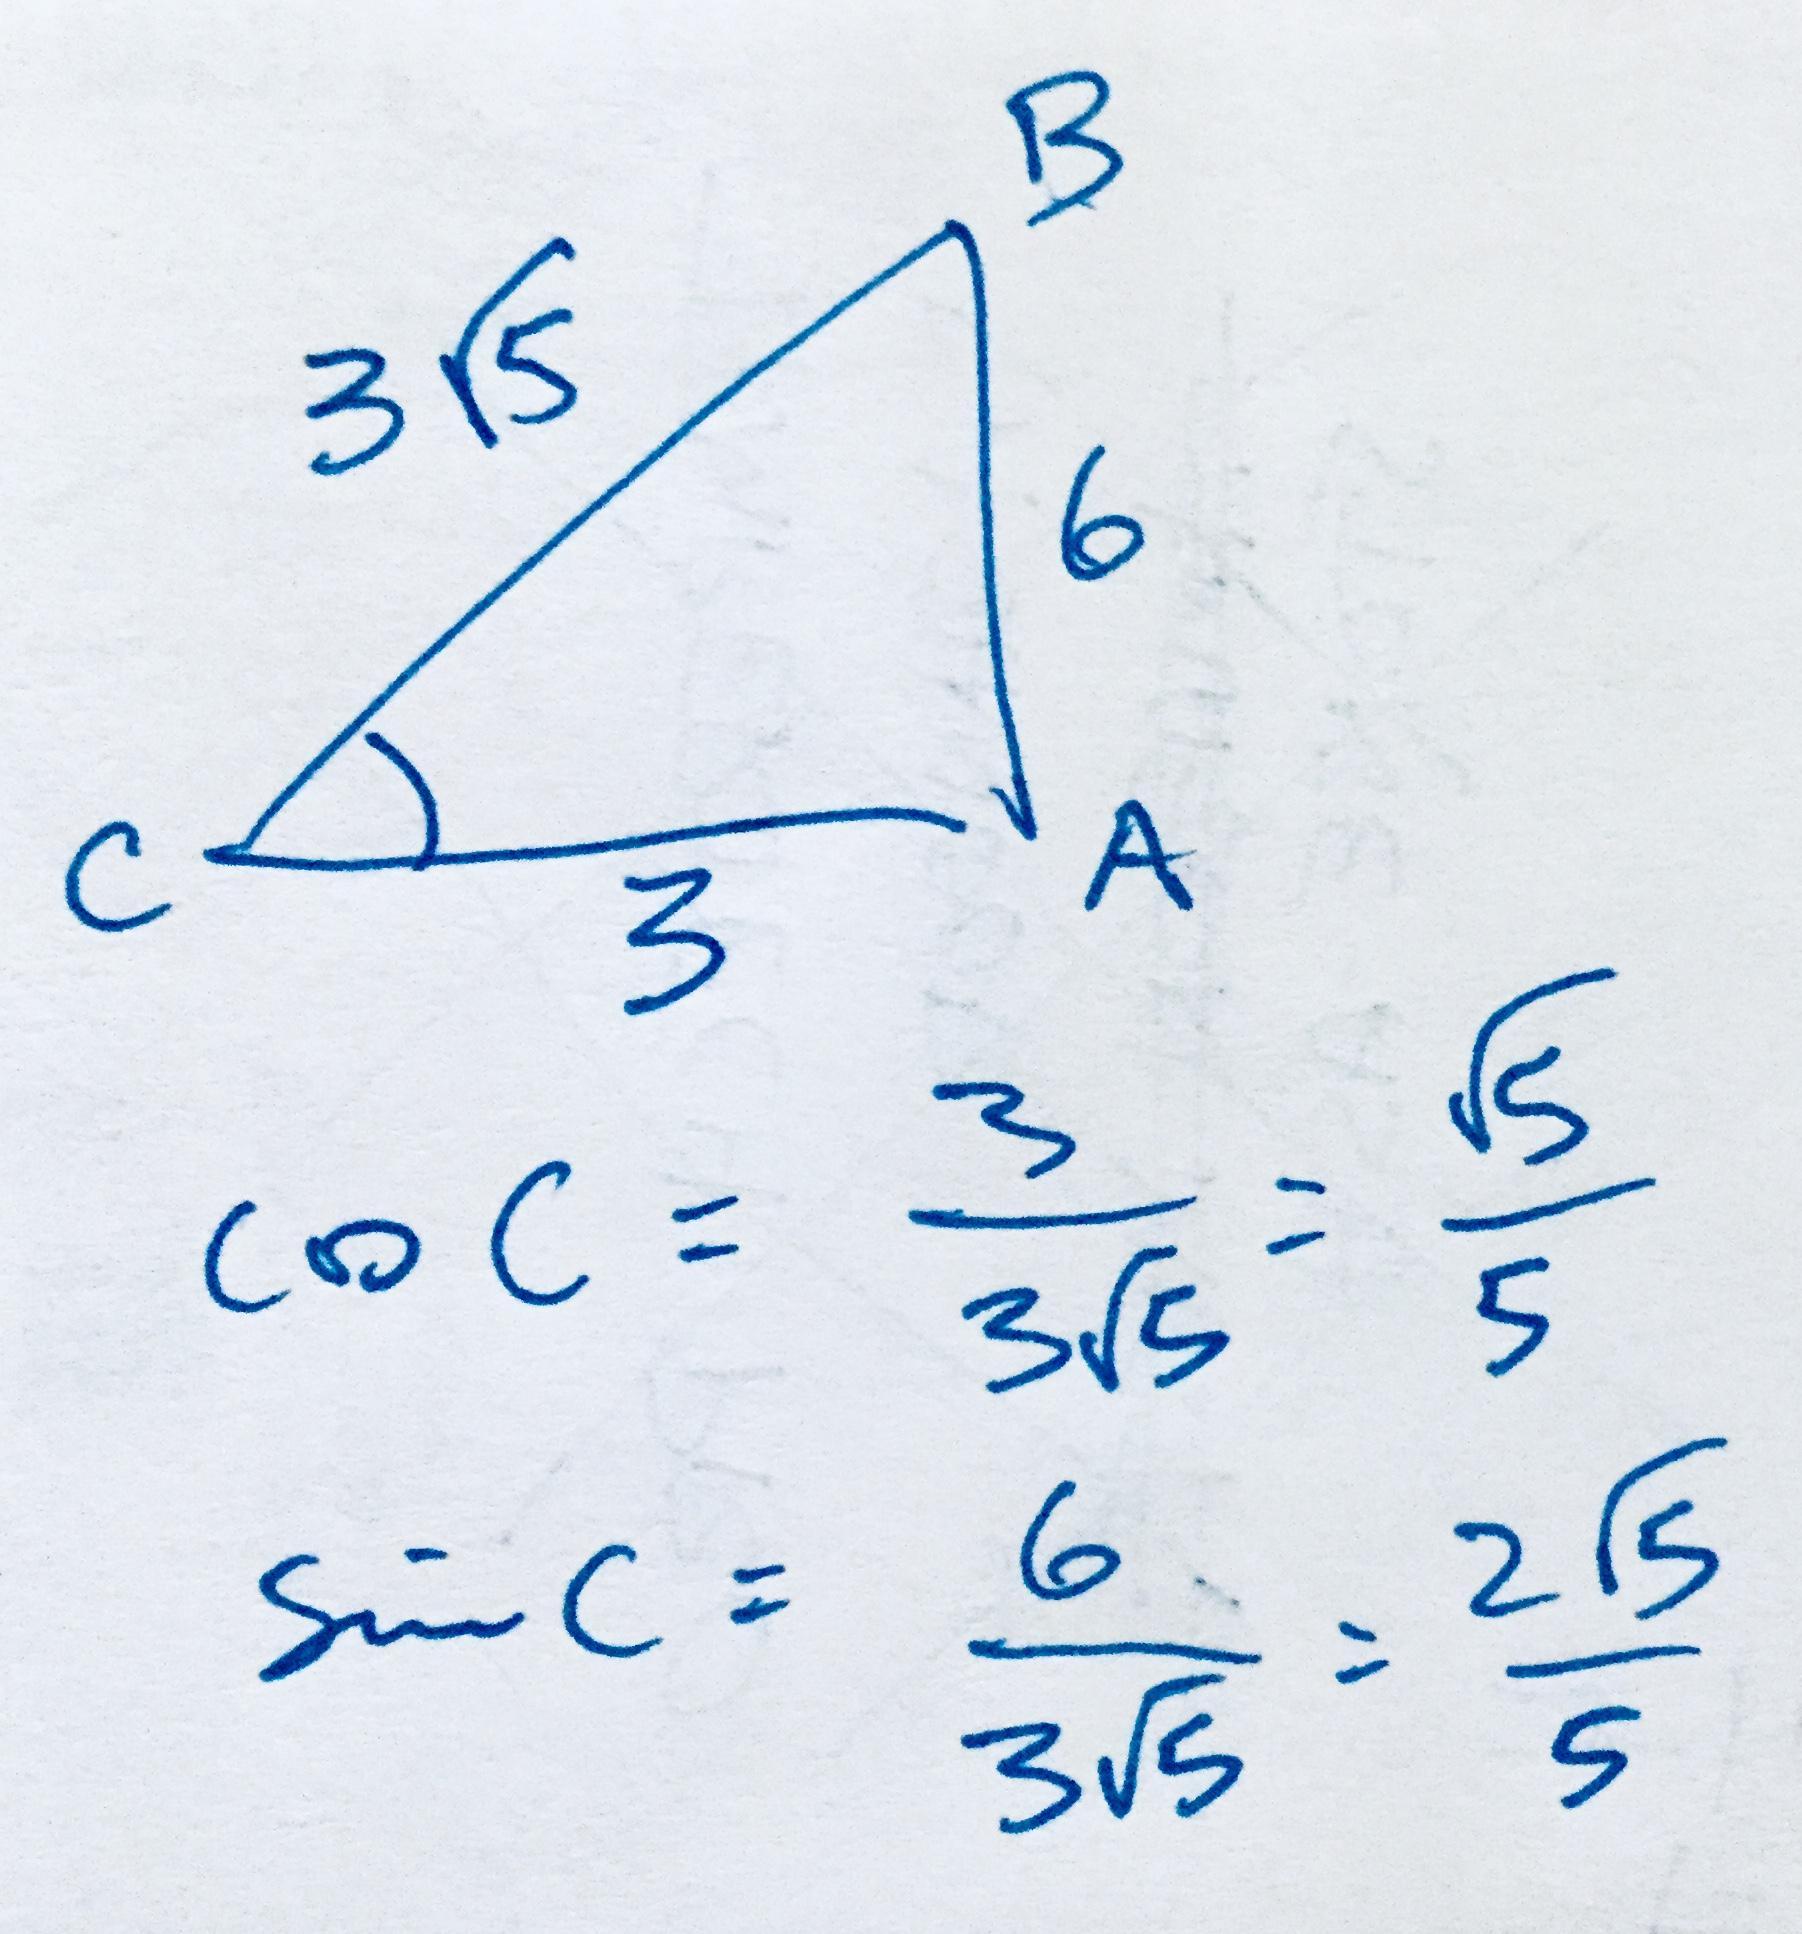 B
3√5
6
C
A
3
cos C = 3/3√5 = √5/5
sin C = 6/3√5 = 2√5/5